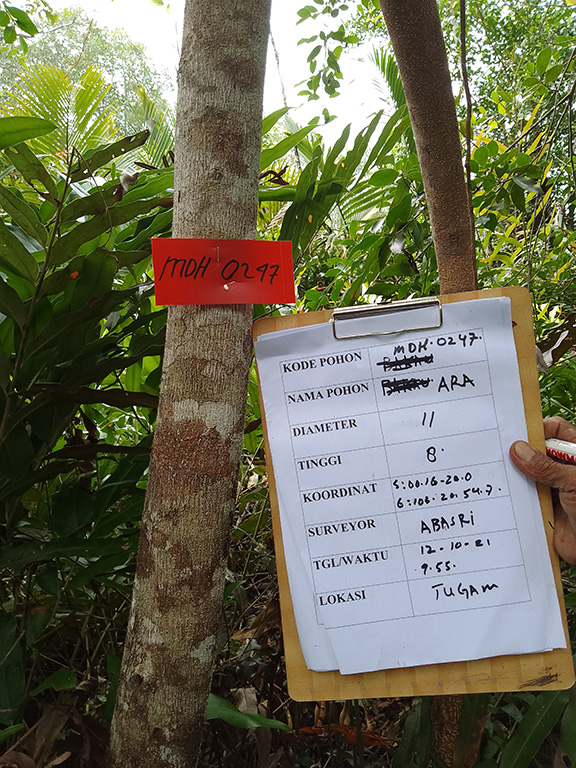 MDH 0247
KODE POHON MDH.0247.
NAMA POHON ARA
DIAMETER 11
TINGGI 8.
KOORDINAT S:00.16-20.0
6:103.20.54.7.
SURVEYOR ABASRI
TGL/WAKTU 12-10-21
9.55.
LOKASI TUGAM